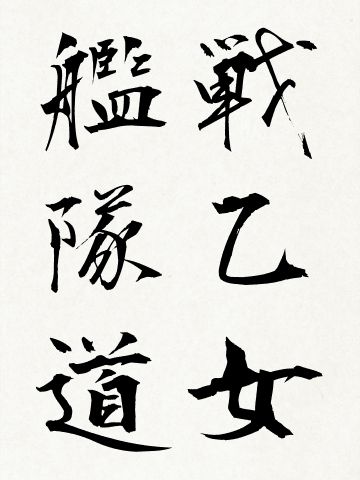 戦乙女
艦隊道